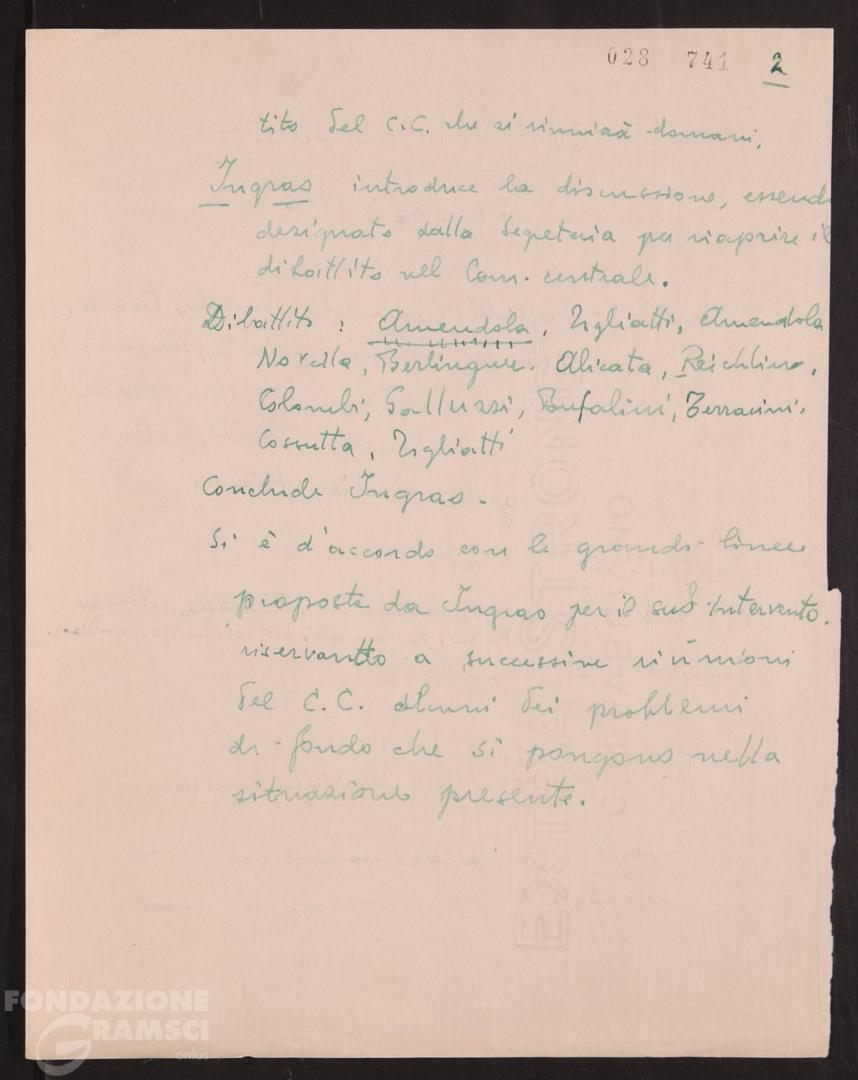 028 741 2
tito del C.C. che si riunirà domani.
Ingrao introduce la discussione, essendo
designato dalla Segreteria per riaprire il
dibattito nel Com. centrale.
Dibattito: Amendola, Togliatti, Amendola
Novella, Berlinguer. Alicata, Reichlin,
Colombi, Galluzzi, Bufalini, Terracini.
Cossutta, Togliatti
Conclude Ingrao.
Si è d'accordo con le grandi linee
proposte da Ingrao per il suo intervento.
riservando a successive riunioni
del C.C. alcuni dei problemi
di fondo che si pongono nella
situazione presente.
EXTRA STRONG
FONDAZIONE
GRAMSCI
onlus